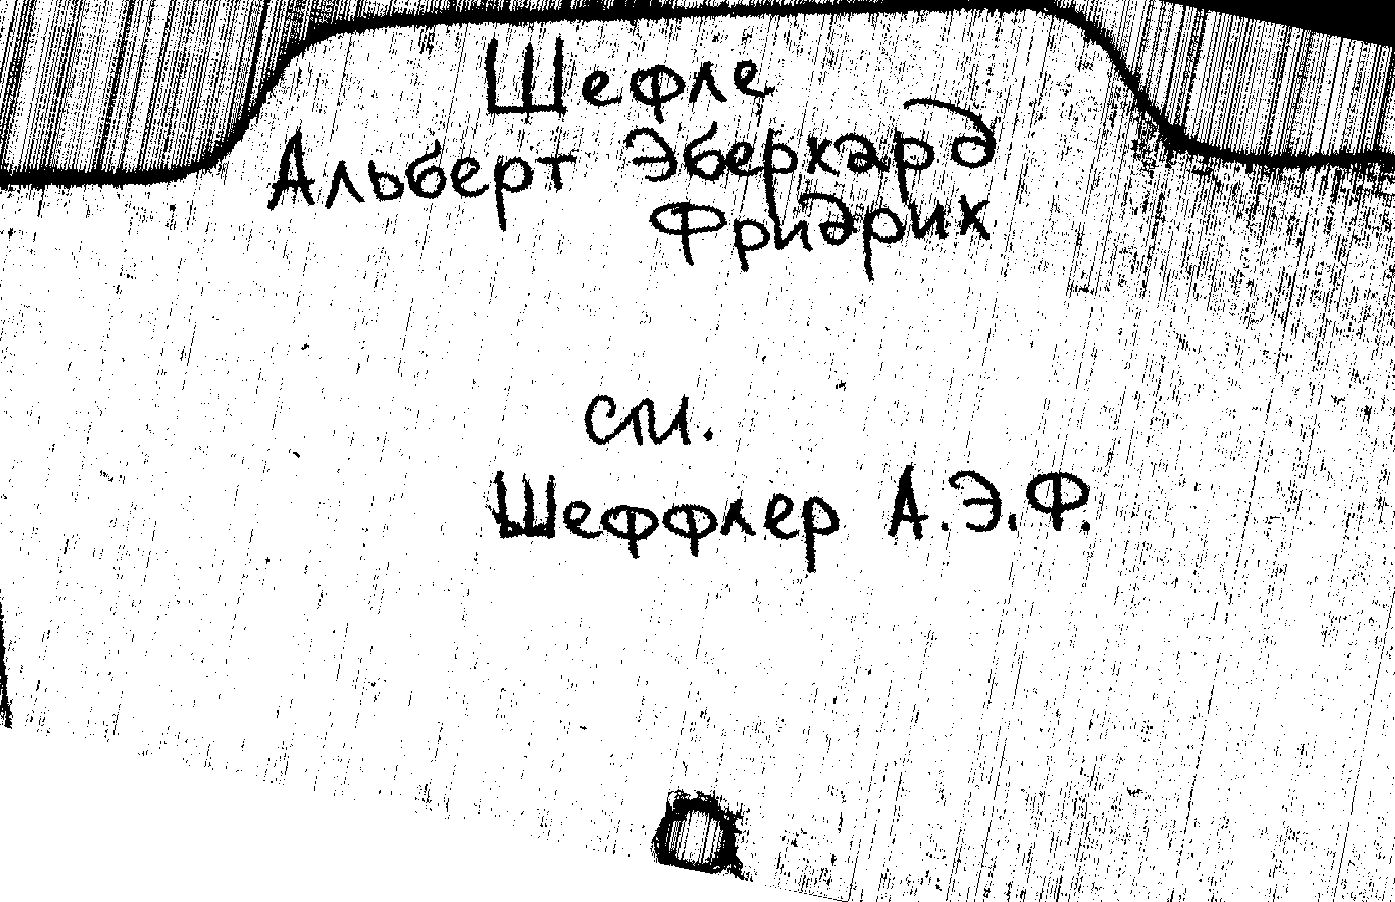 Шефле
Альберт Эберхард
Фридрих
см.
Шеффлер А.Э.Ф.